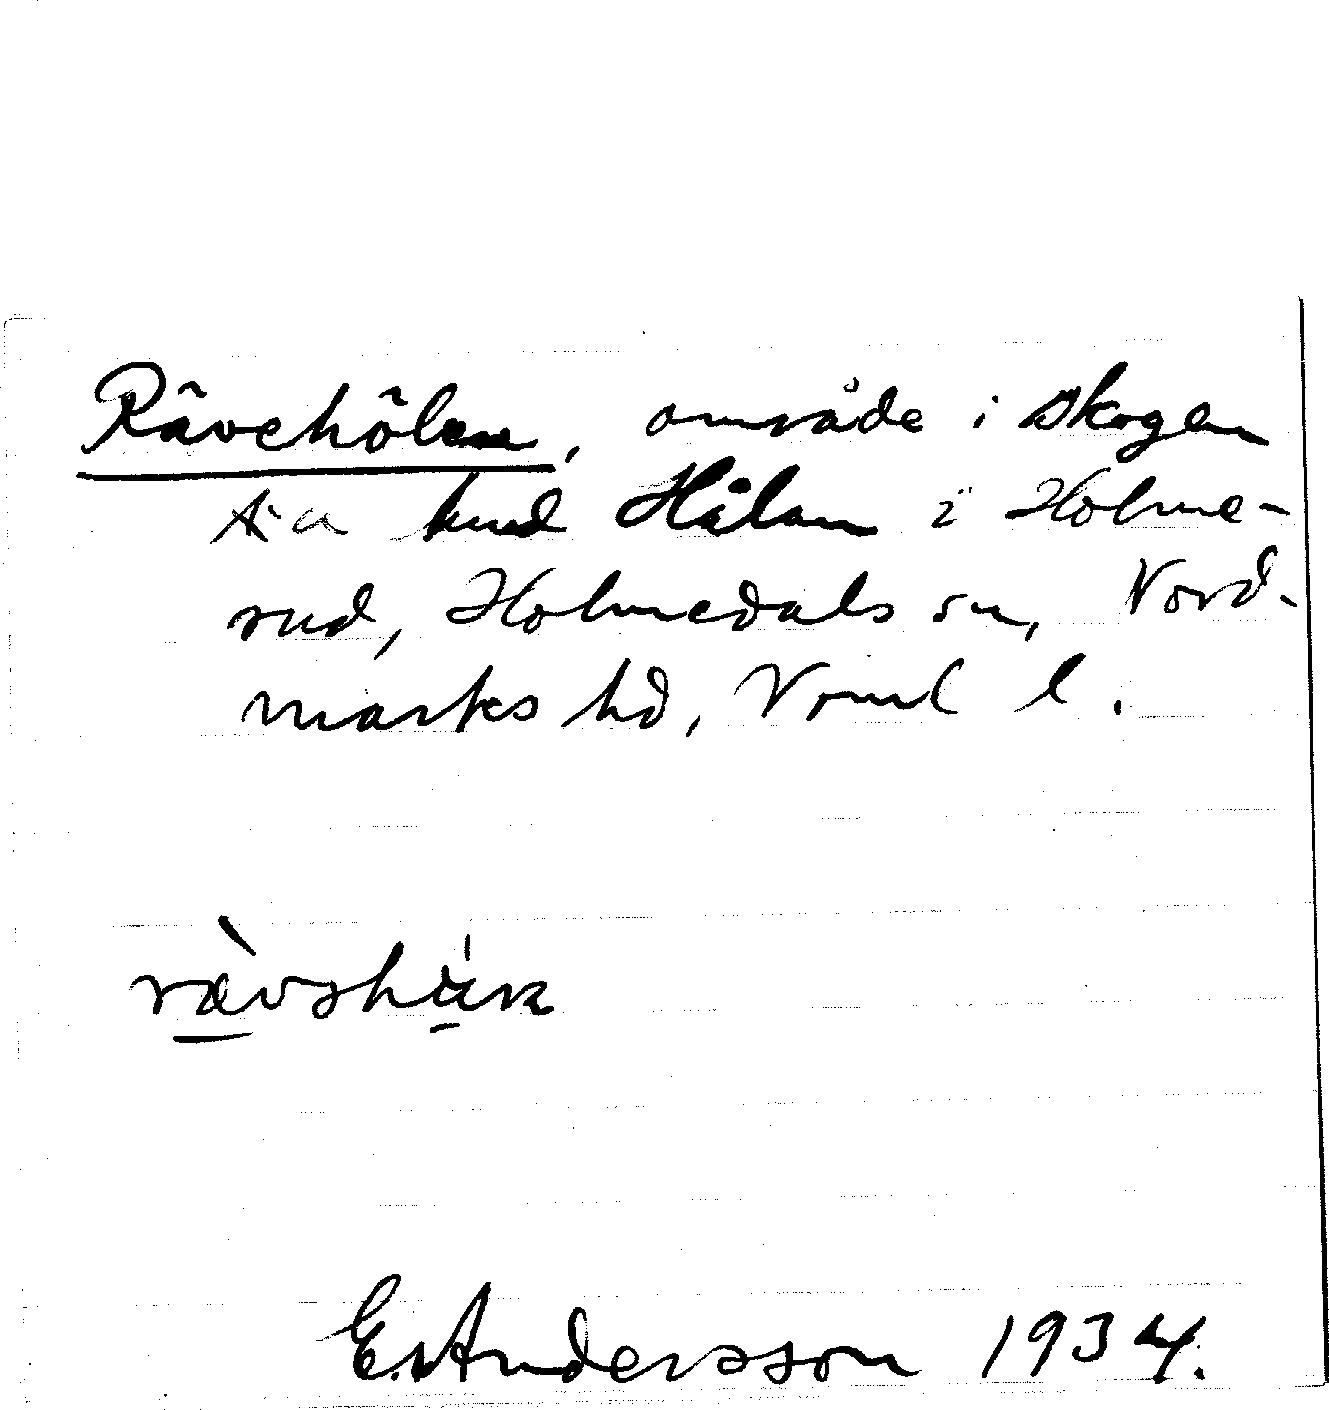 Râvehôlen, område i skogen
hmd Hålan i Holme-
rud, Holmedals sn, Nord-
marks hd, Vrml l.
E. Andersson 1934.